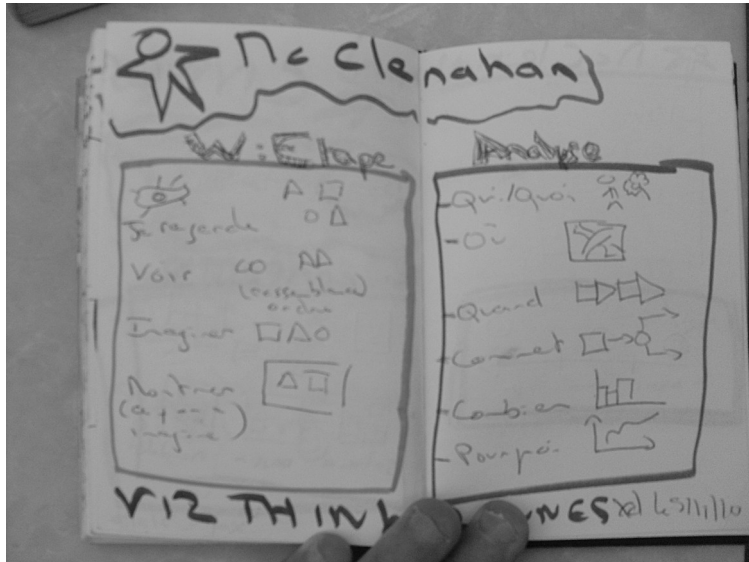 Mc Clenahan
Je regarde
Voir
(ressemblance)
ordre
Imaginer
Montrer
imaginé)
Analyse
- Qui/Quoi
- Où
- Quand
- Comment
- Combien
- Pourquoi
VIZ THIN
NES